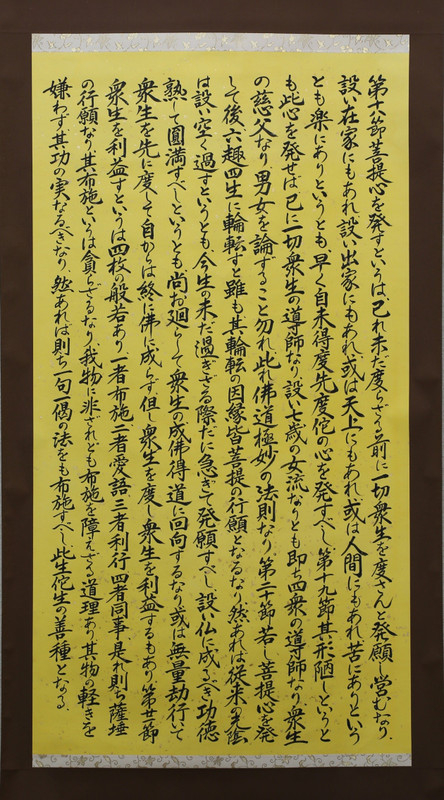 第十八節菩提心を発すというは己れ未だ度らざる前に一切衆生を度さんと発願し営むなり
設い在家にもあれ設い出家にもあれ或は天上にもあれ或は人間にもあれ苦にありという
とも楽にありというとも早く自未得度先度佗の心を発すべし第十九節其形陋しというと
も此心を発せば已に一切衆生の導師なり設い七歳の女流なりとも即ち四衆の導師なり衆生
の慈父なり男女を論ずること勿れ此れ佛道極妙の法則なり第二十節若し菩提心を発
して後六趣四生に輪転すと雖も其輪転の因縁皆菩提の行願となるなり然あれば従来の光陰
は設い空く過すというとも今生の未だ過ぎざる際だに急ぎて発願すべし設い仏に成るべき功徳
熟して圓満すべしというとも尚お廻らして衆生の成佛得道に回向するなり或は無量劫行いて
衆生を先に度して自からは終に佛に成らず但し衆生を度し衆生を利益するもあり第廿一節
衆生を利益すというは四枚の般若あり一者布施二者愛語三者利行四者同事是れ則ち薩埵
の行願なり其布施というは貪らざるなり我物に非ざれども布施を障えざる道理あり其物の軽きを
嫌わず其功の実なるべきなり然あれば則ち一句一偈の法をも布施すべし此生佗生の善種となる